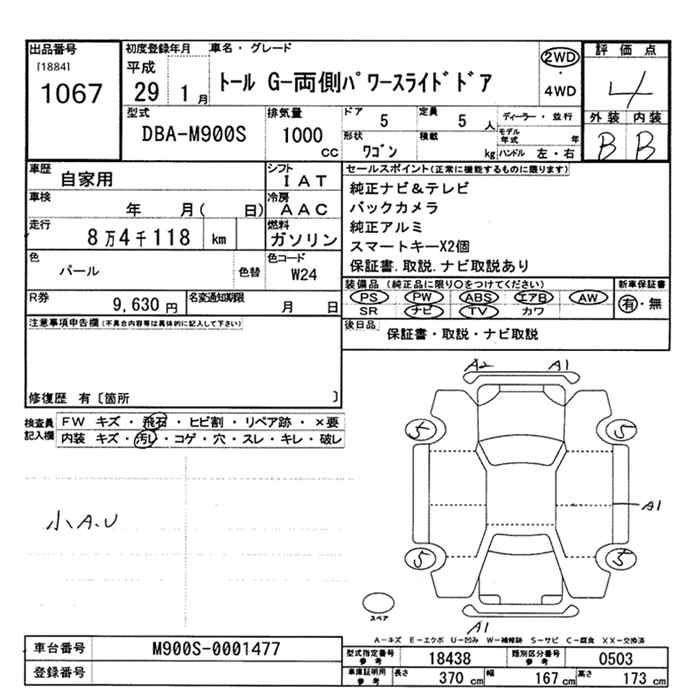 出品番号
[1884]
1067
初度登録年月
平成
29 1月
車名・グレード
トール G-両側パワースライドドア
2WD
・
4WD
評価点
4
外装 内装
B B
型式
DBA-M900S
排気量
1000
CC
ドア
5
定員
5 人
形状
ワゴン
積載
kg
ディーラー・並行
モデル年式 年
ハンドル 左・右
車歴
自家用
シフト
IAT
車検
年 月( 日)
冷房
AAC
走行
8万4千118 km
燃料
ガソリン
色
パール
色替
色コード
W24
R券
9,630円
名変通知期限
月 日
注意事項申告欄(不具合内容等は具体的に記入して下さい)
修復歴 有〔箇所 〕
セールスポイント(正常に機能するものに限ります)
純正ナビ&テレビ
バックカメラ
純正アルミ
スマートキーX2個
保証書.取説.ナビ取説あり
装備品(純正品に限り○をつけてください)
PS PW ABS エアB AW
SR ナビ TV カワ
新車保証書
有・無
後日品
保証書・取説・ナビ取説
検査員記入欄
FW キズ・飛石・ヒビ割・リペア跡・×要
内装 キズ・汚レ・コゲ・穴・スレ・キレ・破レ
小A.U
A2 A1
5 5
A1
5 5
スペア
A1
A-キズ E-エクボ U-凹み W-補修跡 S-サビ C-腐食 XX-交換済
車台番号
M900S-0001477
登録番号
型式指定番号
参考
18438
類別区分番号
参考
0503
車庫証明用
参考
長さ
370 cm
幅
167 cm
高さ
173 cm